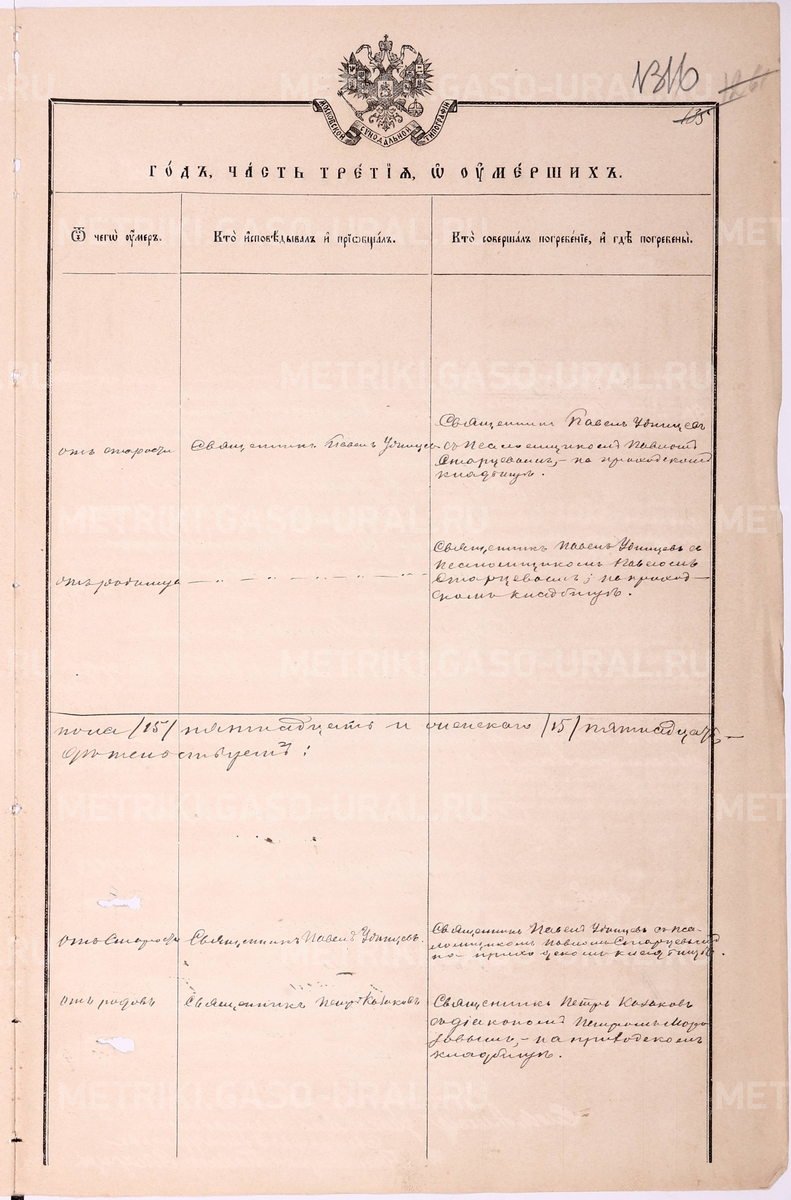 1316
135
МОСКОВСКОЙ СѴНОДАЛЬНОЙ ТИПОГРАФІИ
ГО́ДЪ, ЧА́СТЬ ТРЕ́ТІѦ, Ѡ҆ ОУ҆МЕ́РШИХЪ.
Ѿ чегѡ̀ оу҆́меръ.
Кто̀ и҆сповѣ́дывалъ и҆ прїѡбща́лъ.
Кто̀ соверша́лъ погребе́нїе, и҆ гдѣ̀ погребены̀.
отъ старости
Священникъ Павелъ Удинцевъ
Священникъ Павелъ Удинцевъ
съ псаломщикомъ Павломъ
Старцевымъ, – на приходскомъ
кладбищѣ.
отъ родимца
— " — " — " — " — " —
Священникъ Павелъ Удинцевъ съ
псаломщикомъ Павломъ
Старцевымъ; на приход-
скомъ кладбищѣ.
пола /15/ пятнадцать и женскаго /15/ пятнадцать
отъ Старости
Священникъ Павелъ Удинцевъ.
Священникъ Павелъ Удинцевъ съ пса-
ломщикомъ Павломъ Старцевымъ
на приходскомъ кладбищѣ.
отъ родовъ
Священникъ Петръ Козаковъ
Священникъ Петръ Козаковъ
съ діакономъ Петромъ Моро-
зовымъ, – на приходскомъ
кладбищѣ.
METRIKI.GASO-URAL.RU